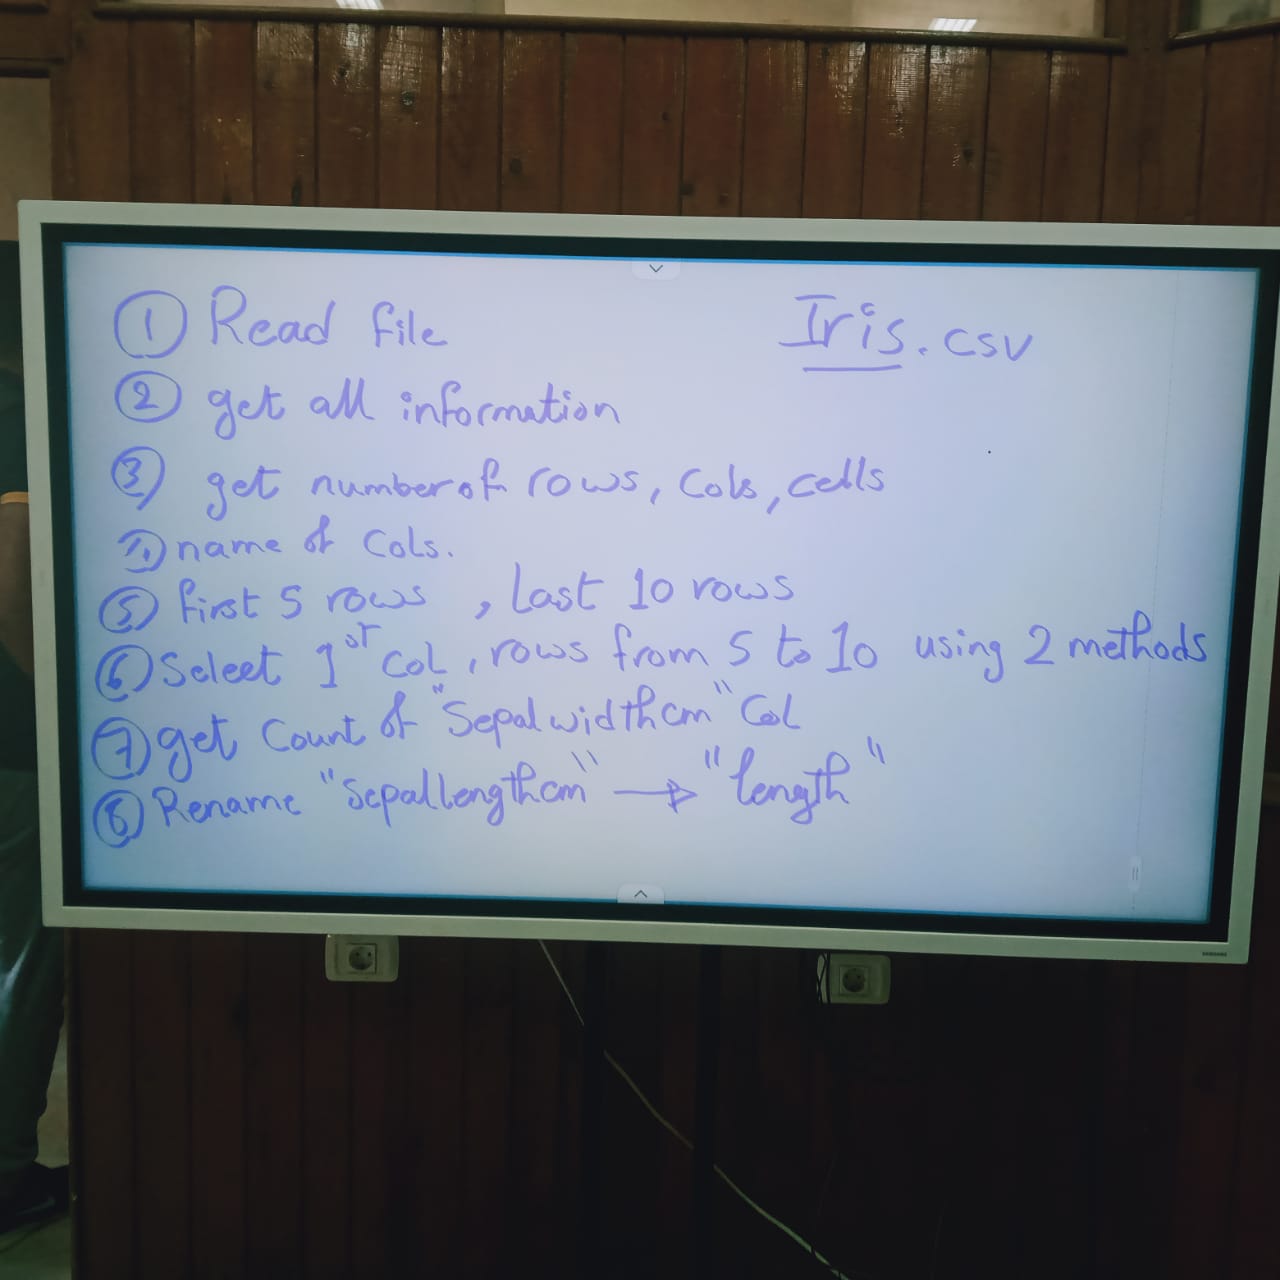 ① Read file
Iris.csv
② get all information
③ get number of rows, Cols, cells
④ name of Cols.
⑤ first 5 rows, last 10 rows
⑥ Select 1st Col, rows from 5 to 10 using 2 methods
⑦ get Count of "Sepalwidthcm" Col
⑧ Rename "Sepallengthcm" → "length"
SAMSUNG